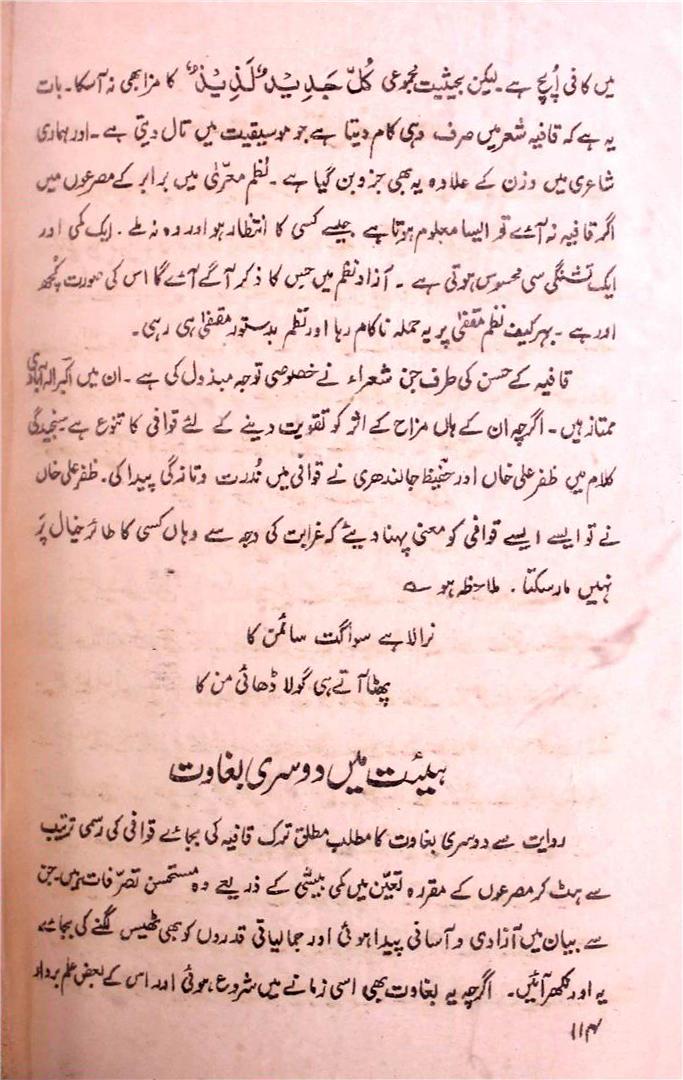 میں کافی اُپج ہے۔ لیکن بحیثیت مجموعی کُلّ جَدِیْدٍ لَذِیْذٌ کا مزا بھی نہ آسکا۔ بات
یہ ہے کہ قافیہ شعر میں صرف وہی کام دیتا ہے جو موسیقیت میں تال دیتی ہے۔ اور ہماری
شاعری میں وزن کے علاوہ یہ بھی جزو بن گیا ہے۔ نظم معرّیٰ میں برابر کے مصرعوں میں
اگر قافیہ نہ آئے تو ایسا معلوم ہوتا ہے جیسے کسی کا انتظار ہو اور وہ نہ ملے۔ ایک کمی اور
ایک تشنگی سی محسوس ہوتی ہے۔ آزاد نظم میں جس کا ذکر آگے آئے گا اس کی صورت کچھ
اور ہے۔ بہر کیف نظم مقفیٰ پر یہ حملہ ناکام رہا اور نظم بدستور مقفیٰ ہی رہی۔
قافیہ کے حسن کی طرف جن شعراء نے خصوصی توجہ مبذول کی ہے۔ ان میں اکبر الہ آبادی
ممتاز ہیں۔ اگرچہ ان کے ہاں مزاح کے اثر کو تقویت دینے کے لئے قوافی کا تنوع ہے سنجیدگی
کلام میں ظفر علی خاں اور حفیظ جالندھری نے قوافی میں نُدرت و تازگی پیدا کی۔ ظفر علی خاں
نے تو ایسے ایسے قوافی کو معنی پہنا دیئے کہ غرابت کی وجہ سے وہاں کسی کا طائر خیال پَر
نہیں مار سکتا۔ ملاحظہ ہو ؎
نرالا ہے سواگت سائمن کا
پھٹا آتے ہی گولا ڈھائی من کا
ہیئت میں دوسری بغاوت
روایت سے دوسری بغاوت کا مطلب مطلق ترک قافیہ کی بجائے قوافی کی رسمی ترتیب
سے ہٹ کر مصرعوں کے مقررہ تعیّن میں کمی بیشی کے ذریعے وہ مستحسن تصرّفات ہیں۔ جن
سے بیان میں آزادی و آسانی پیدا ہوئی اور جمالیاتی قدروں کو بھی ٹھیس لگنے کی بجائے
یہ اور نکھر آئیں۔ اگرچہ یہ بغاوت بھی اسی زمانے میں شروع ہوئی اور اس کے بعض علم بردار
۱۱۴